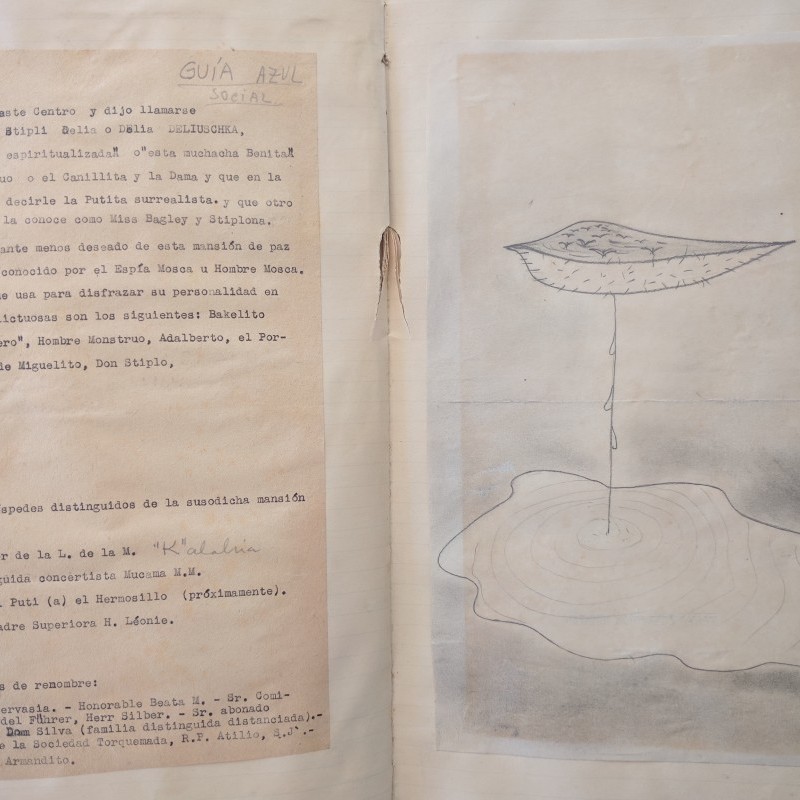 GUÍA AZUL
SOCIAL
este Centro y dijo llamarse
Stipli Delia o Délia DELIUSCHKA,
espiritualizada" o"esta muchacha Benita"
uo o el Canillita y la Dama y que en la
decirle la Putita surrealista. y que otro
la conoce como Miss Bagley y Stiplona.
ante menos deseado de esta mansión de paz
conocido por el Espía Mosca u Hombre Mosca.
e usa para disfrazar su personalidad en
lictuosas son los siguientes: Bakelito
ero", Hombre Monstruo, Adalberto, el Por-
de Miguelito, Don Stiplo,
spedes distinguidos de la susodicha mansión
r de la L. de la M. "K"alabria
guida concertista Mucama M.M.
Puti (a) el Hermosillo (próximamente).
adre Superiora H. Léonie.
s de renombre:
ervasia. - Honorable Beata M. - Sr. Comi-
del Führer, Herr Silber. - Sr. abonado
Dom Silva (familia distinguida distanciada).-
e la Sociedad Torquemada, R.P. Atilio, S.J.-
Armandito.